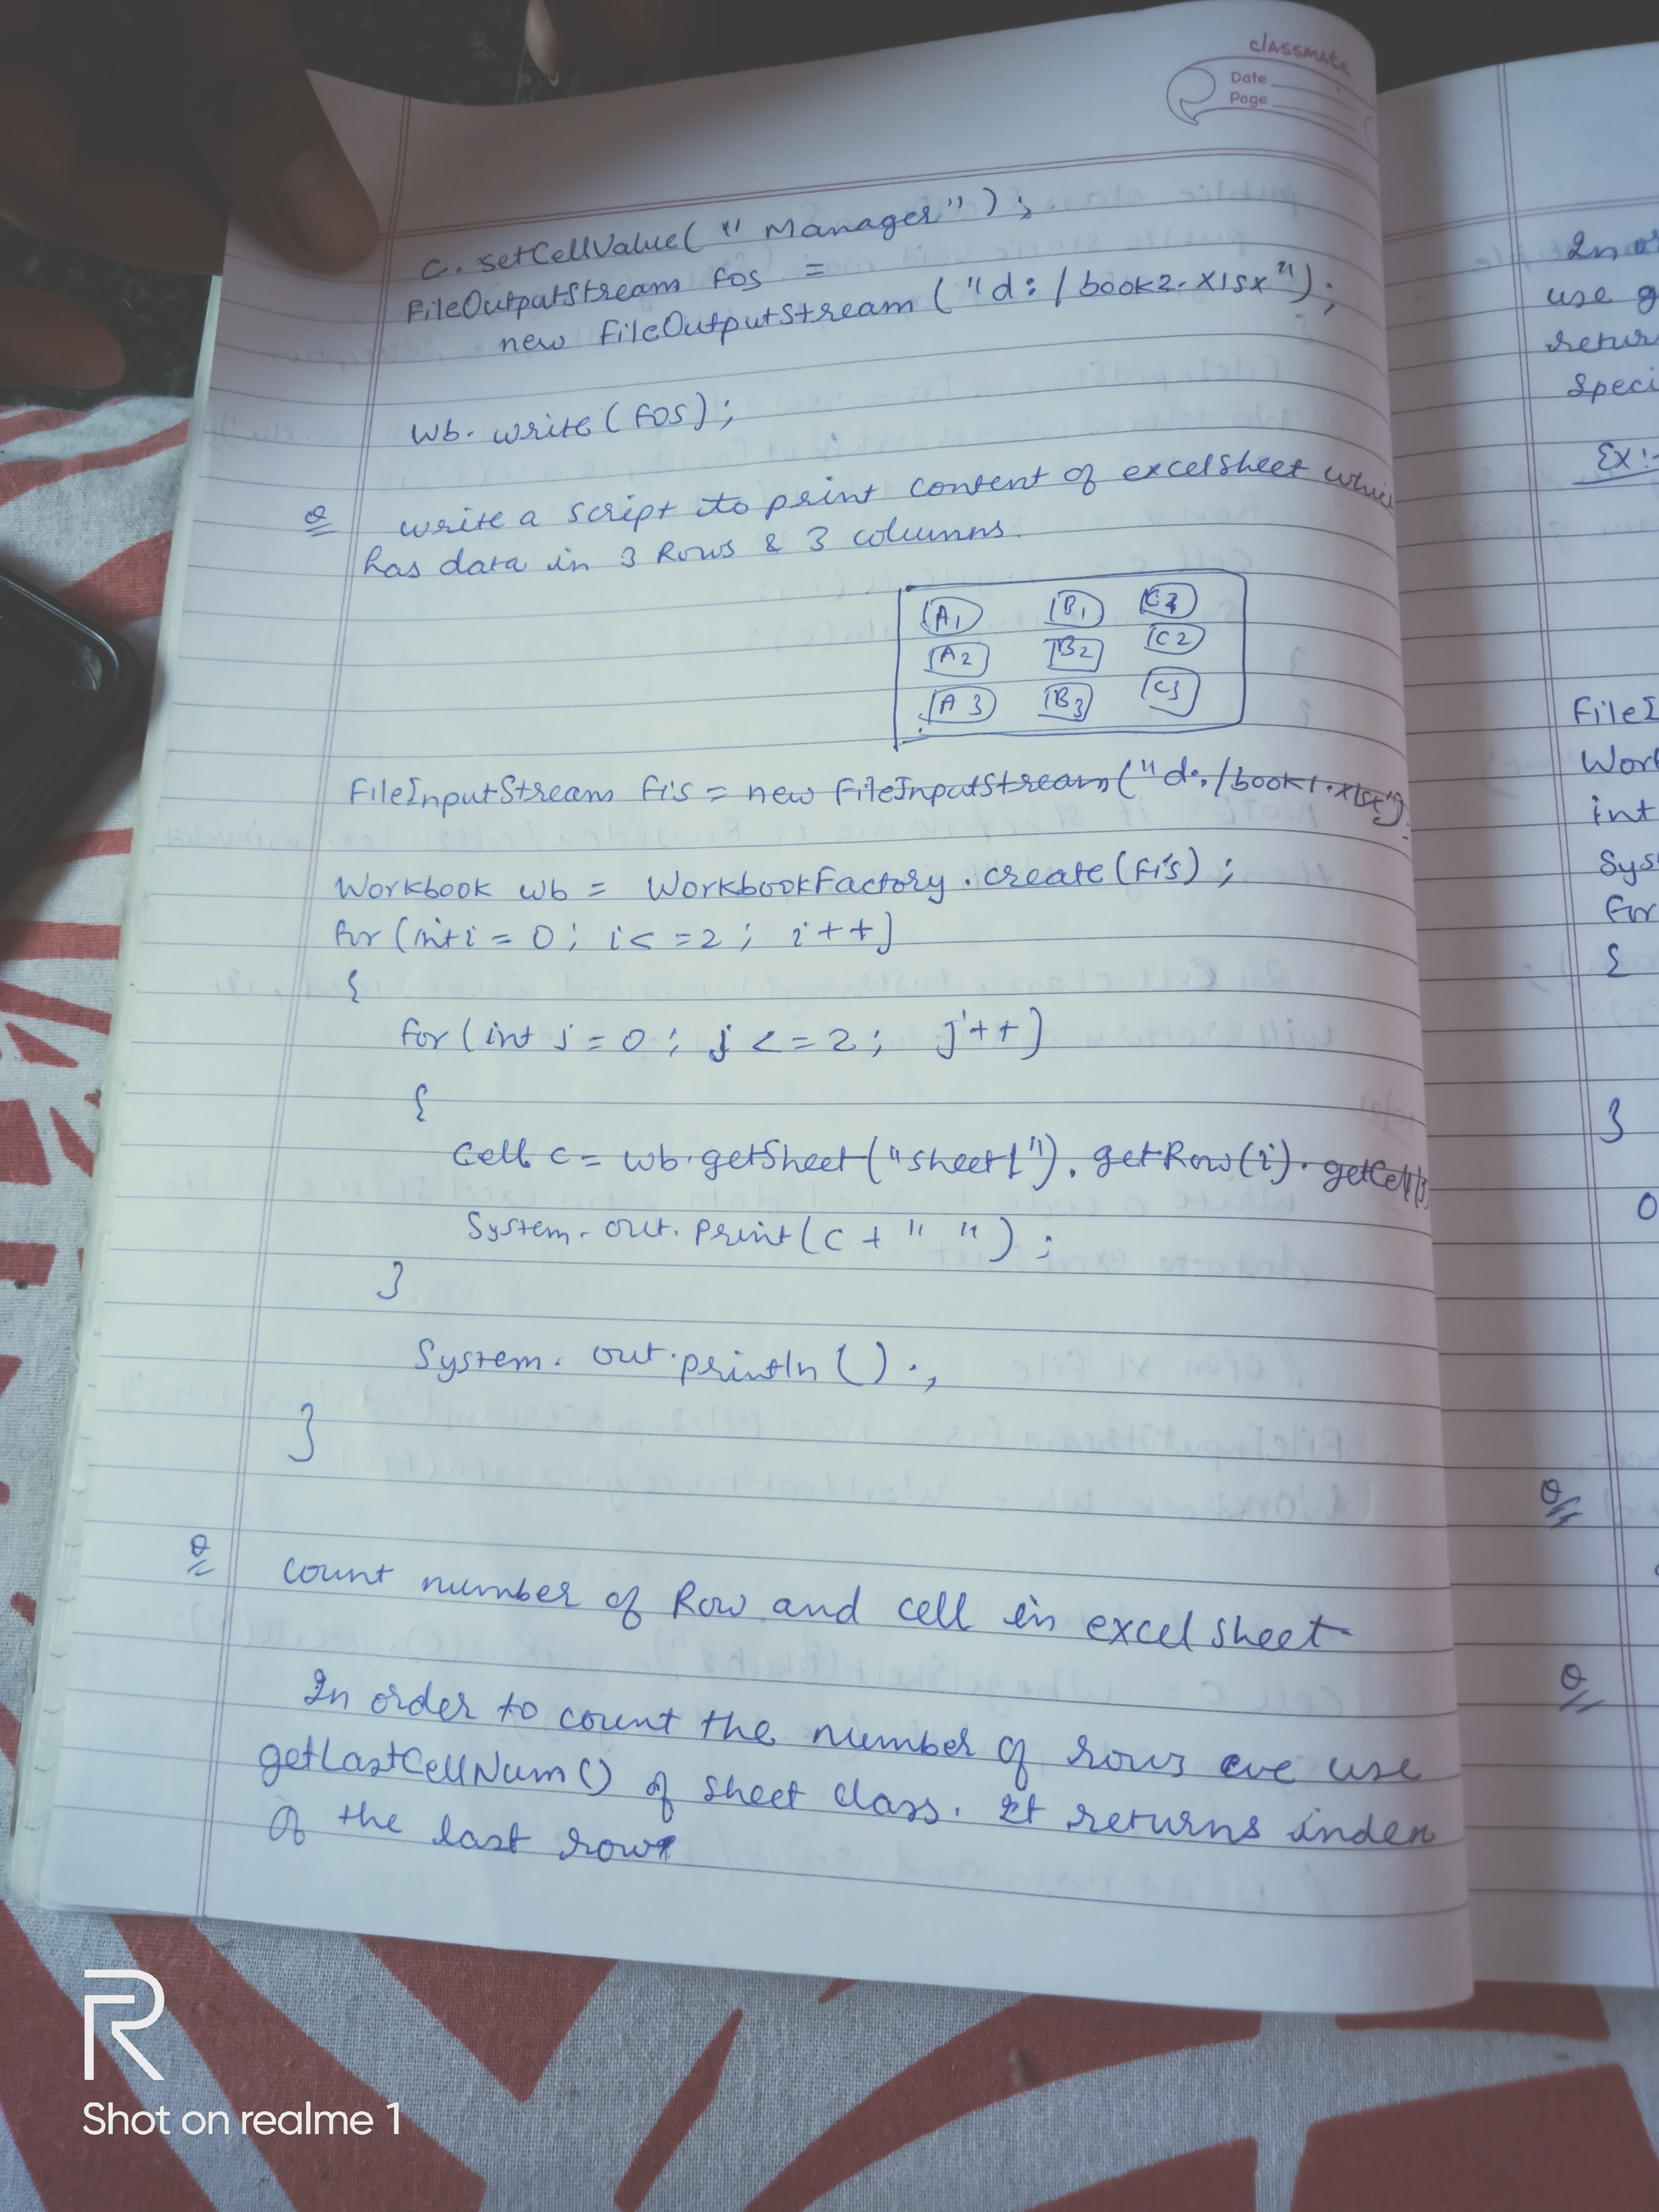 classmate
Date
Page
c. setCellValue(" Manager");
FileOutputStream fos =
new FileOutputStream ("d:/book2.xlsx");
wb. write(fos);
Q write a script to print content of excelsheet
has data in 3 Rows & 3 columns.
A1 B1
A2 B2 C2
A3 B3 C3
FileInputStream fis = new FileInputStream("d:/book1.xlsx")
Workbook wb = WorkbookFactory.create(fis);
for (int i = 0; i<=2; i++)
{
for (int j = 0; j<=2; j++)
{
Cell c = wb.getSheet("sheet1").getRow(i).
System.out.print(c + " ");
}
System.out.println();
}
Q Count number of Row and cell in excel sheet
In order to count the number of rows eve use
getLastCellNum() of sheet class. It returns index
of the last row
use
Ex:-
int
for
{
}
0
Q
Q
Shot on realme 1